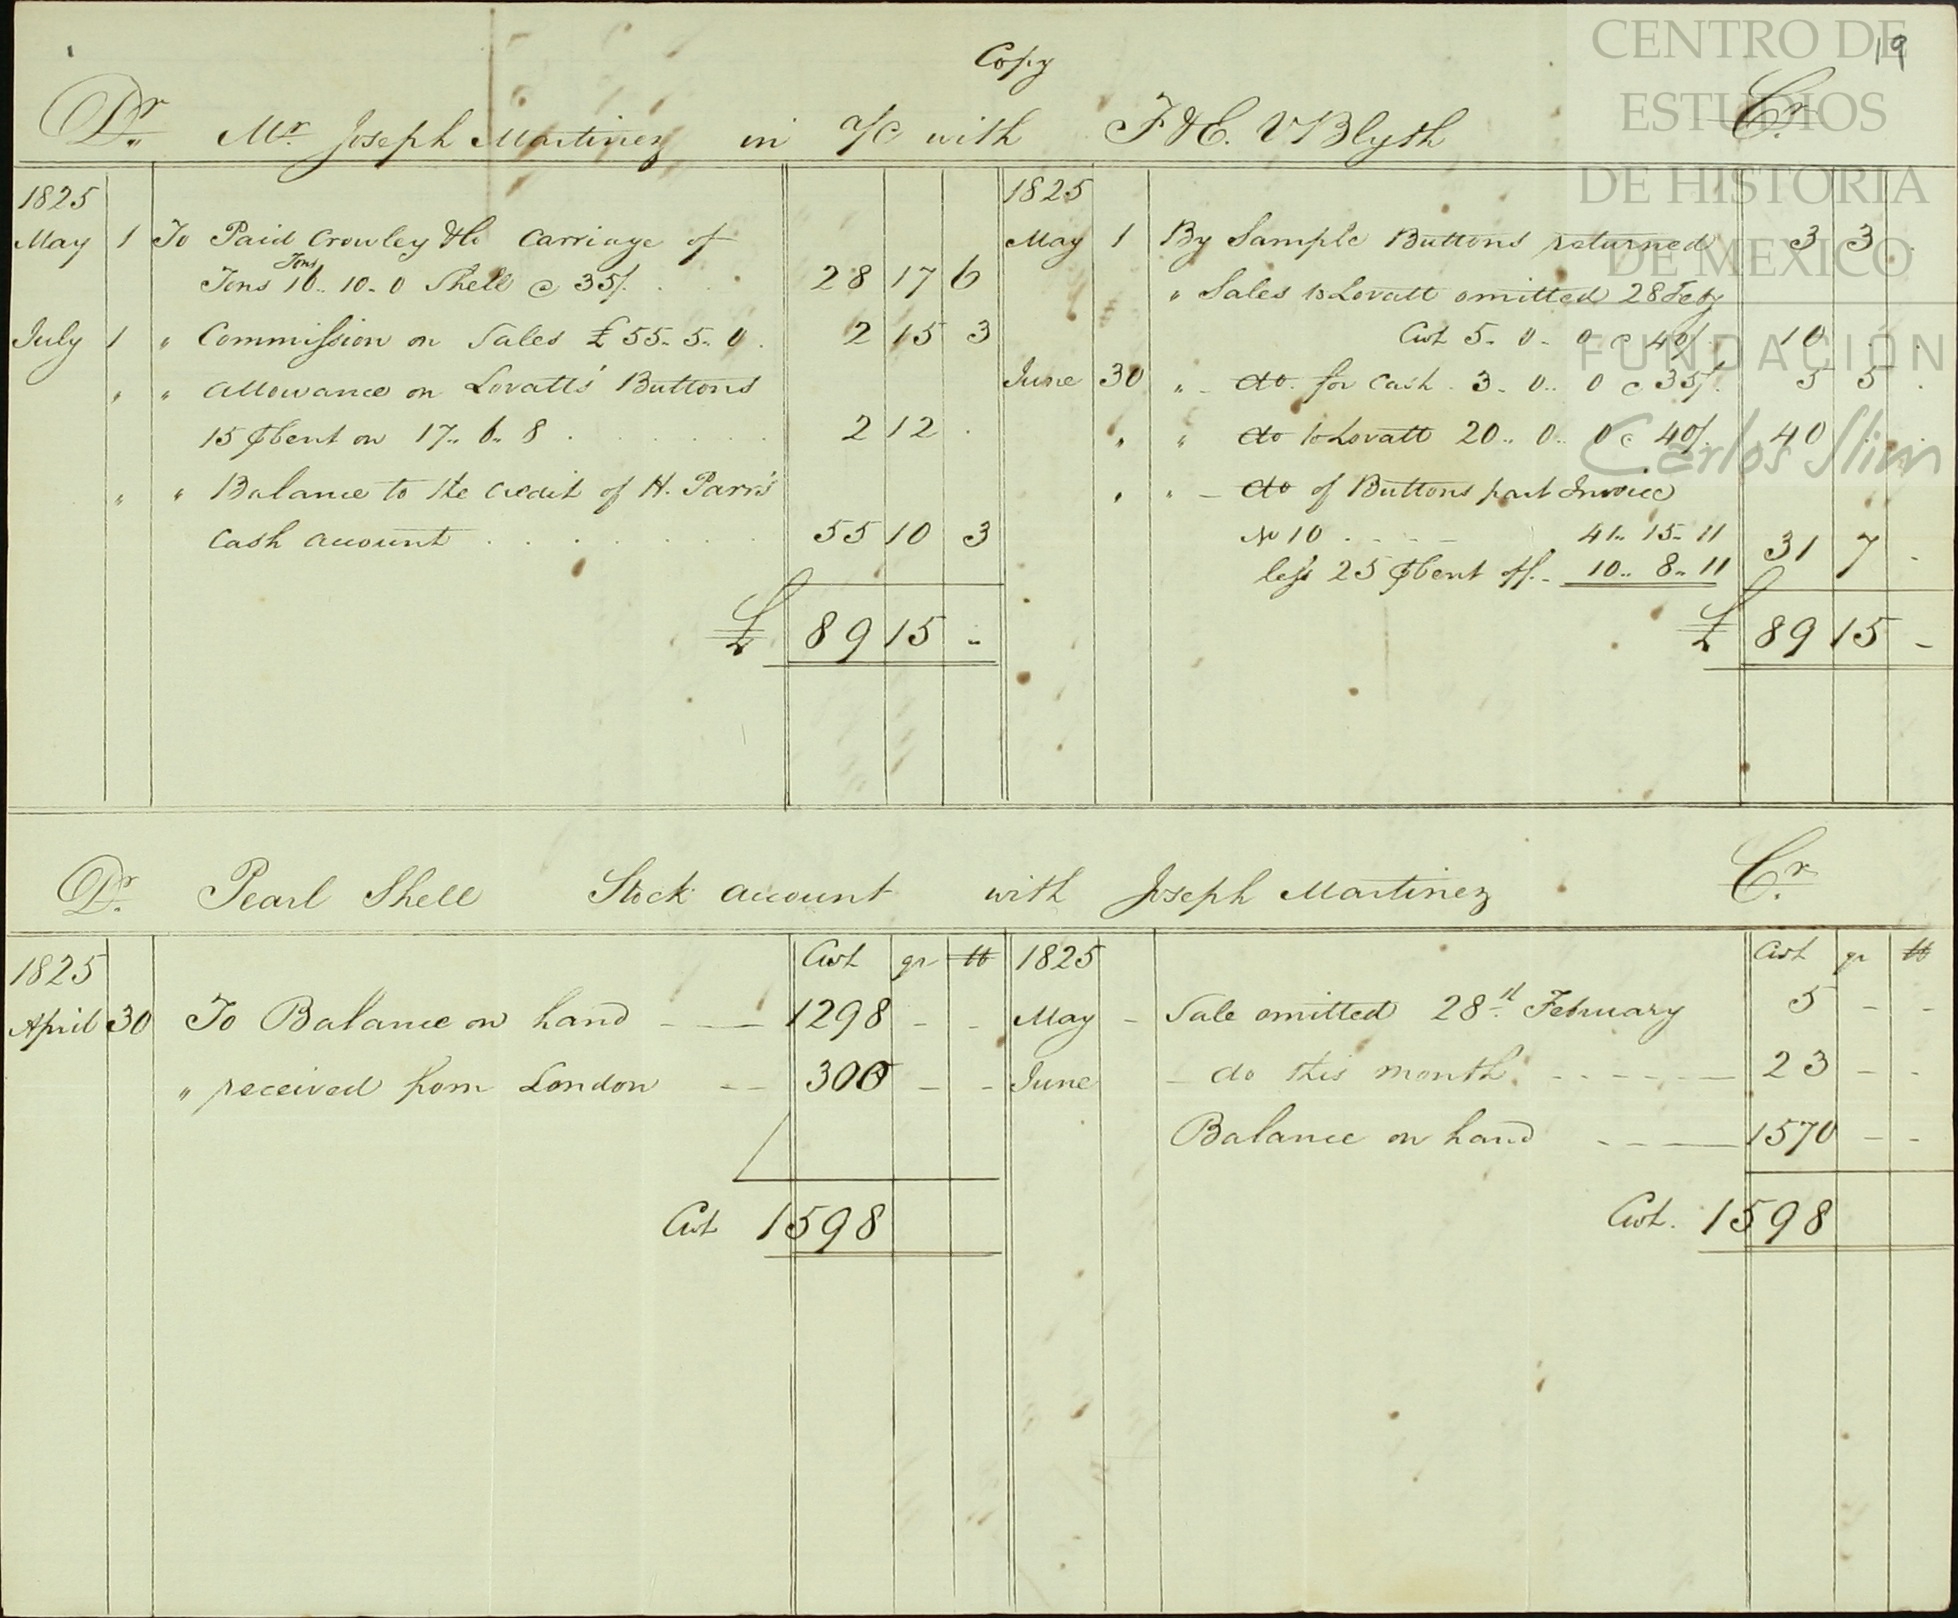 Copy
19
Dr. Mr. Joseph Martinez in a/c with F & E. V Blyth Cr.
1825
May 1 To Paid Crowley & Co Carriage of
Tons
Tons 16.. 10. 0 Shell @ 35/. 28 17 6
July 1 " Commission on Sales £ 55. 5. 0. 2 15 3
" " Allowance on Lovatt's Buttons
15 ⅌ Cent on 17.. 6.. 8 2 12 .
" " Balance to the credit of H. Parr's
Cash account 55 10 3
£ 89 15 -
1825
May 1 By Sample Buttons returned 3 3 .
" Sales to Lovatt omitted 28 Feby
Cwt 5. 0. 0 @ 40/. 10 . .
June 30 " - do. for Cash. 3. 0.. 0 @ 35/. 5 5 .
" " do to Lovatt 20.. 0.. 0 @ 40/. 40 . .
" " - do of Buttons part Invoice
No 10 41.. 15. 11
31 7 -
less 25 ⅌ Cent off. 10.. 8.. 11
£ 89 15 -
Dr. Pearl Shell Stock account with Joseph Martinez Cr.
1825 Cwt qr lb
April 30 To Balance on hand 1298 - -
" received from London 300 - -
Cwt 1598
1825 Cwt qr lb
May - Sale omitted 28th February 5 - -
June - do this month 23 - -
Balance on hand 1570 - -
Cwt. 1598
CENTRO DE
ESTUDIOS
DE HISTORIA
DE MEXICO
FUNDACIÓN
Carlos Slim